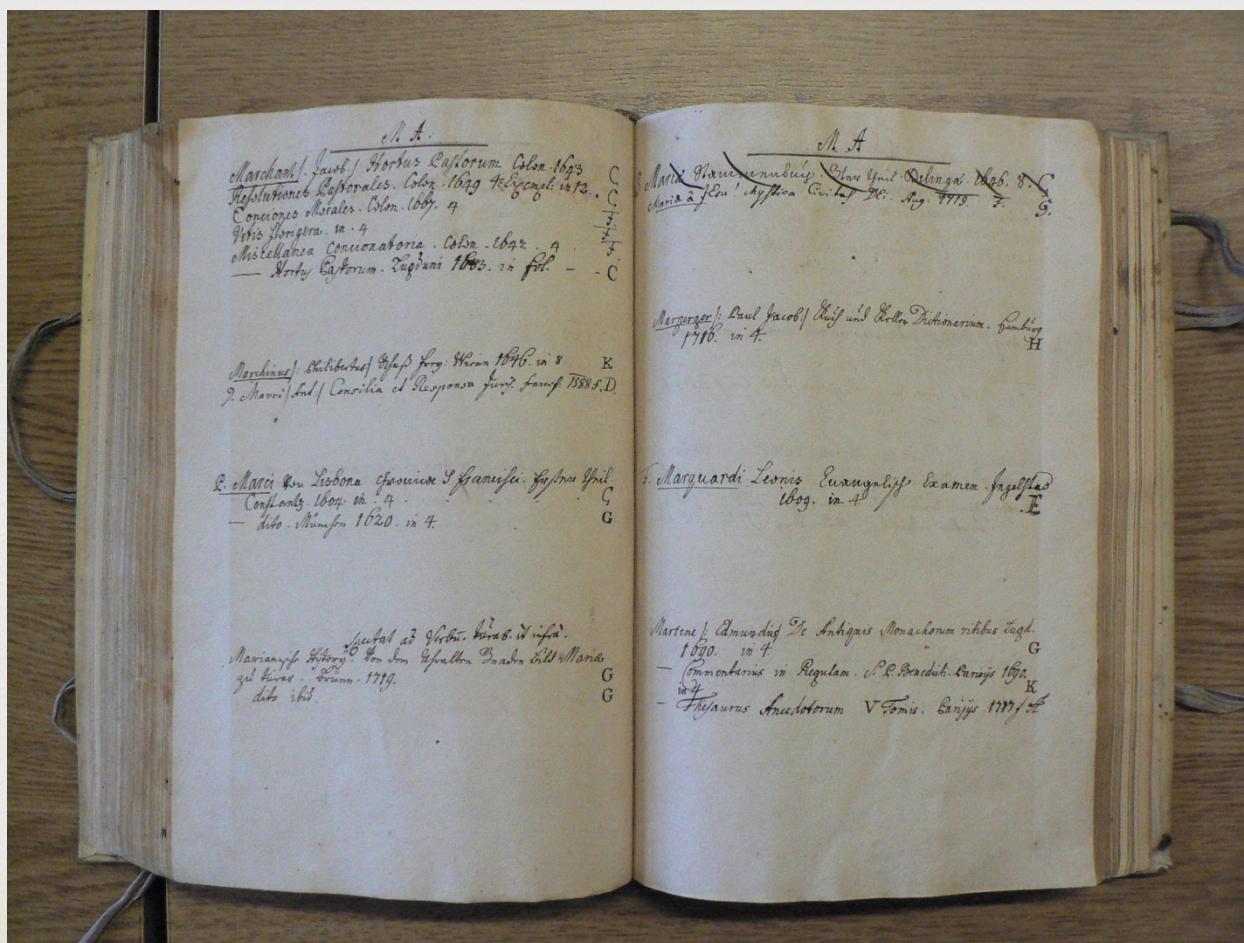 M A.
Marchant /. Jacob / Hortus Pastorum Colon. 1643 C
Resolutiones Pastorales. Colon. 1649 4. Exempl. in 12. C
Conciones Morales. Colon. 1667. 4 C
Vitis florigera. in. 4
Miscellanea Concionatoria. Colon. 1642. 4
— Hortus Pastorum. Lugduni 1683. in fol. — - C
Marchinus /: Philibertus / 1646. in 8 K
Marci / Ant: / Consilia et Responsa Jur. Francf. 1588 f. D
P. Marci von Lisbona Chronica S Francisci. Ersten Theil
Constantz. 1604. in. 4 C
— dito. München 1620. in 4. G
Spectat ad Verbũ. Turas. ut infrà.
Marianische History. Von dem Uhralten Gnaden bild Mariæ
zu Turas. Brünn. 1719. G
dito ibid. G
M A
Maria 1646. 8. C
Maria à Jesu! Mystica Civitas Dei. Aug. 1719 G.
Marperger /: Paul Jacob: / Küch und Keller Dictionarium. Hamburg
1716. in 4. H
Marquardi Leonis Evangelisch Examen. Ingolstad
1609. in 4 E
Martene /: Edmundus De Antiquis Monachorum ritibus Lugd.
1690. in 4 G
— Commentarius in Regulam. S. P. Benedicti. Parisijs 1690.
in 4 K
— Thesaurus Anecdotorum V Tomis. Parisijs. 1717 f A